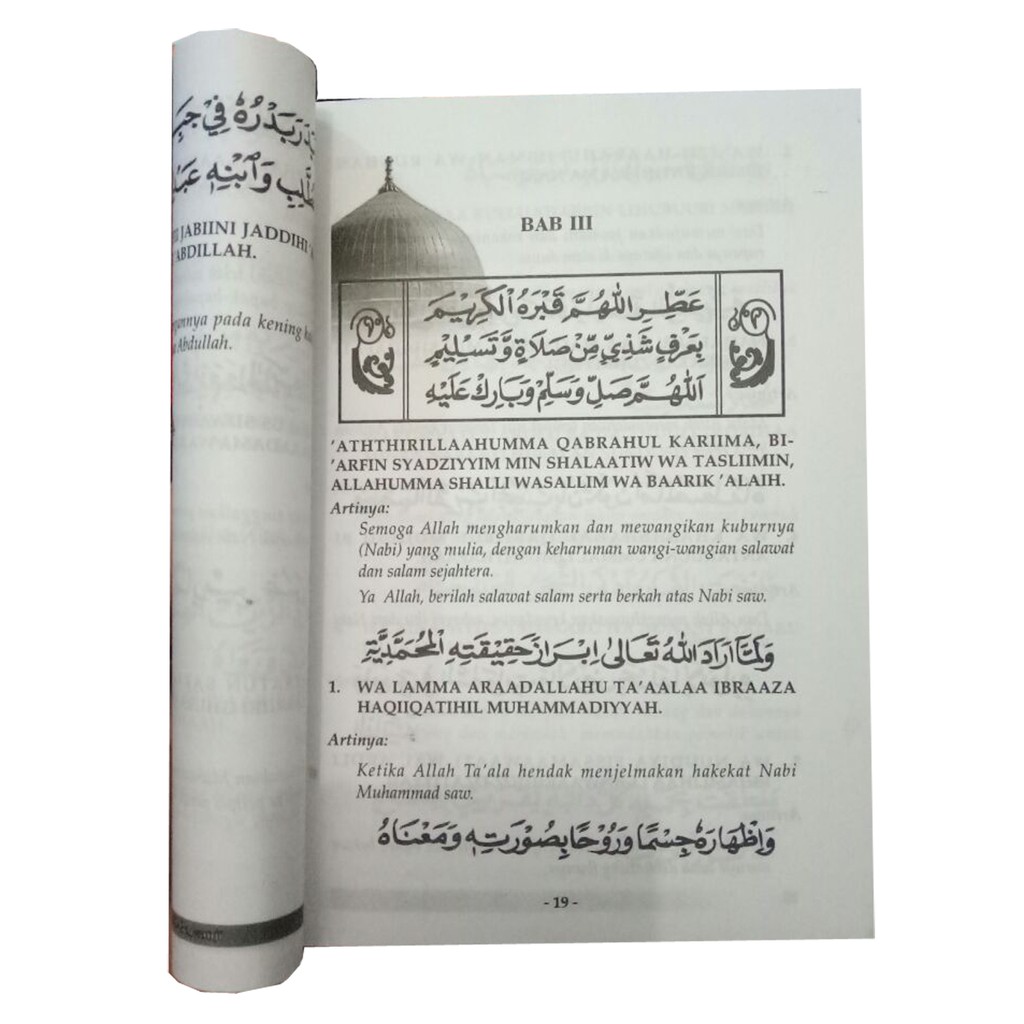 بَدْرُهُ فِيْ
وَابْنِهِ
JABIINI JADDIHI
'ABDILLAH.
pada kening
Abdullah.
BAB III
عَطِّرِ اللّٰهُمَّ قَبْرَهُ الْكَرِيْمَ
بِعَرْفٍ شَذِيٍّ مِّنْ صَلَاةٍ وَّتَسْلِيْمٍ
اَللّٰهُمَّ صَلِّ وَسَلِّمْ وَبَارِكْ عَلَيْهِ
'ATHTHIRILLAAHUMMA QABRAHUL KARIIMA, BI-
'ARFIN SYADZIYYIM MIN SHALAATIW WA TASLIIMIN,
ALLAHUMMA SHALLI WASALLIM WA BAARIK 'ALAIH.
Artinya:
Semoga Allah mengharumkan dan mewangikan kuburnya
(Nabi) yang mulia, dengan keharuman wangi-wangian salawat
dan salam sejahtera.
Ya Allah, berilah salawat salam serta berkah atas Nabi saw.
وَلَمَّا اَرَادَ اللّٰهُ تَعَالٰى اِبْرَازَ حَقِيْقَتِهِ الْمُحَمَّدِيَّةِ
1. WA LAMMA ARAADALLAHU TA'AALAA IBRAAZA
HAQIIQATIHIL MUHAMMADIYYAH.
Artinya:
Ketika Allah Ta'ala hendak menjelmakan hakekat Nabi
Muhammad saw.
وَاِظْهَارَهُ جِسْمًا وَرُوْحًا بِصُوْرَتِهِ وَمَعْنَاهُ
- 19 -